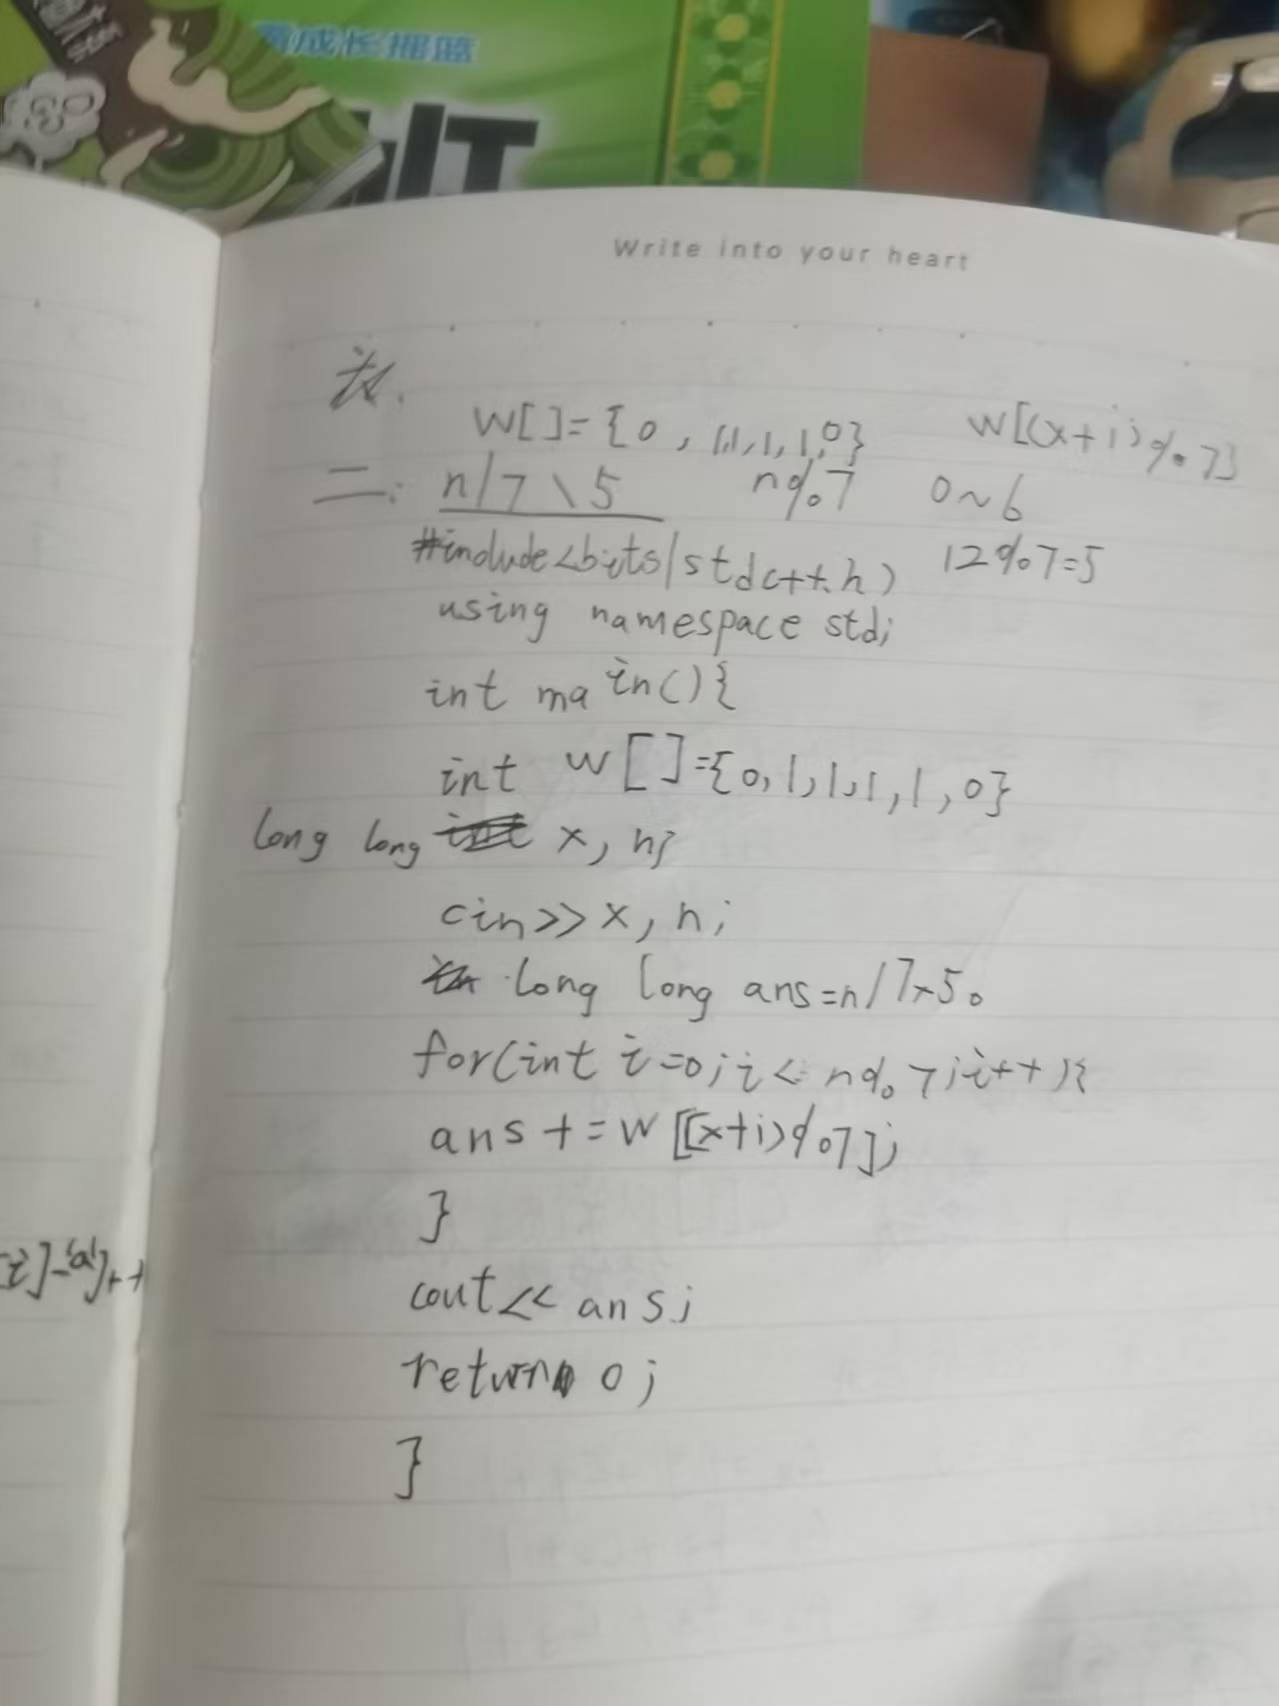 成长摇篮
Write into your heart
W[]={0,1,1,1,1,0} w[(x+i)%7]
二: n/7\5 n%7 0~6
#include<bits/stdc++.h) 12%7=5
using namespace std;
int main(){
int w[]={0,1,1,1,1,0}
long long x, n;
cin>>x, n;
long long ans=n/7×5。
for(int i=0;i<n%7;i++){
ans+=w[(x+i)%7];
}
[i]-'a']++
cout<<ans;
return 0;
}